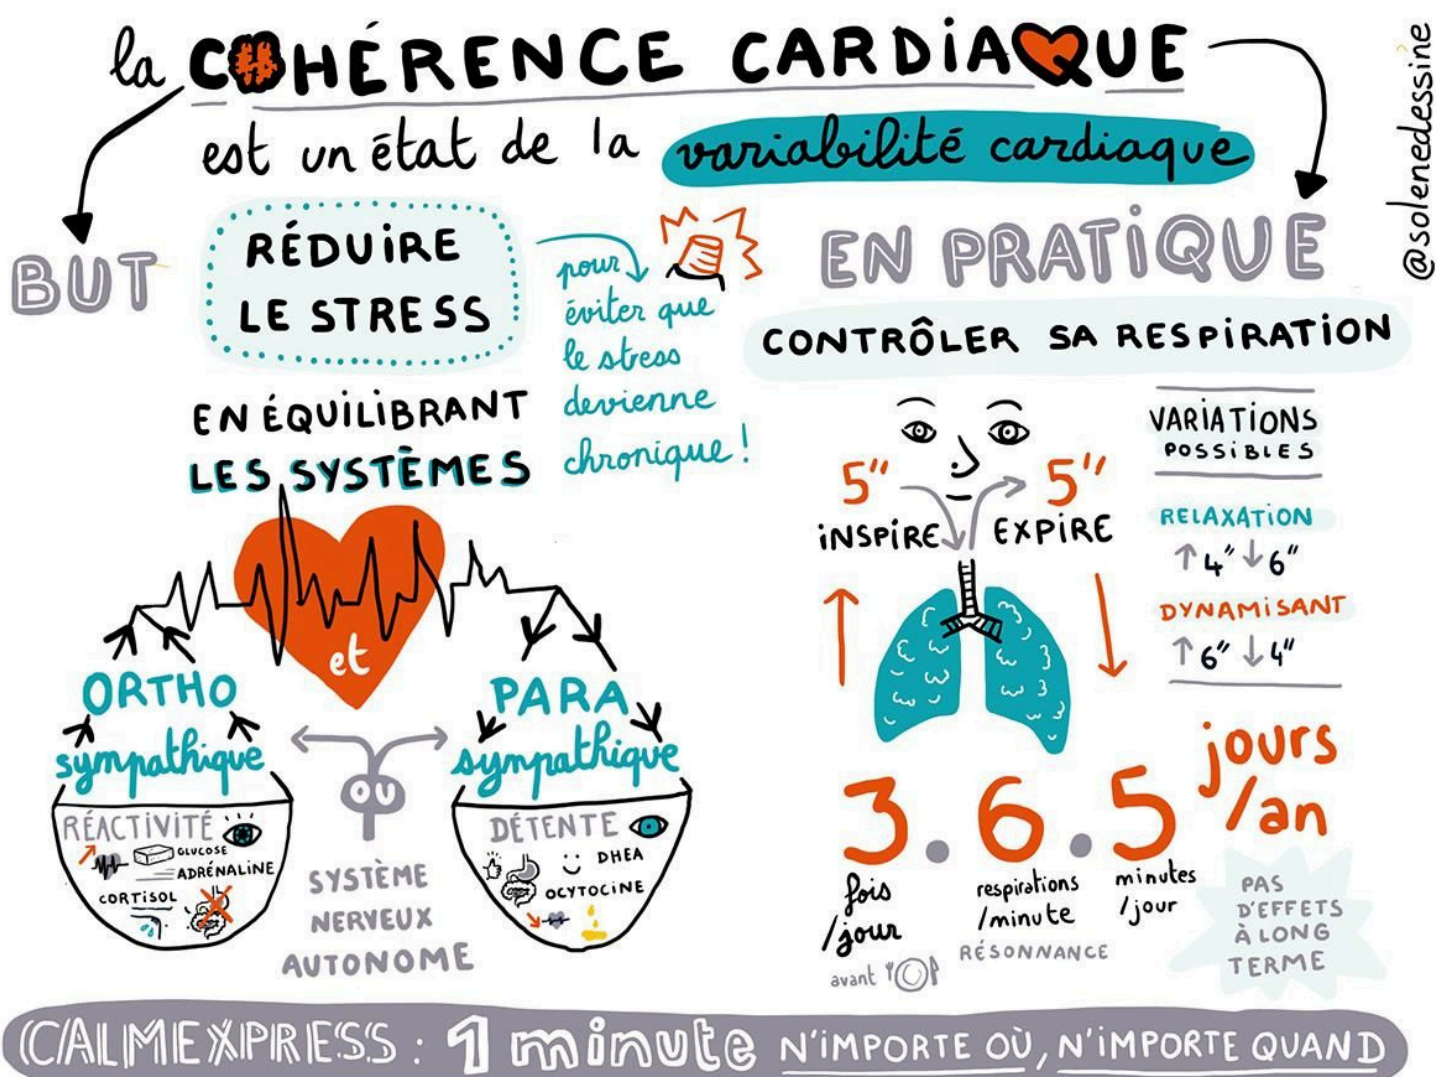 la COHÉRENCE CARDIAQUE
est un état de la variabilité cardiaque
@solenedessine
BUT
RÉDUIRE
LE STRESS
pour
éviter que
le stress
devienne
chronique !
EN ÉQUILIBRANT
LES SYSTÈMES
et
ORTHO
sympathique
PARA
sympathique
ou
RÉACTIVITÉ
GLUCOSE
ADRÉNALINE
CORTISOL
DÉTENTE
DHEA
OCYTOCINE
SYSTÈME
NERVEUX
AUTONOME
EN PRATIQUE
CONTRÔLER SA RESPIRATION
5" 5"
INSPIRE EXPIRE
VARIATIONS
POSSIBLES
RELAXATION
↑ 4" ↓ 6"
DYNAMISANT
↑ 6" ↓ 4"
3.6.5 jours
/an
fois
/jour
avant
respirations
/minute
RÉSONNANCE
minutes
/jour
PAS
D'EFFETS
À LONG
TERME
CALMEXPRESS : 1 minute N'IMPORTE OÙ, N'IMPORTE QUAND